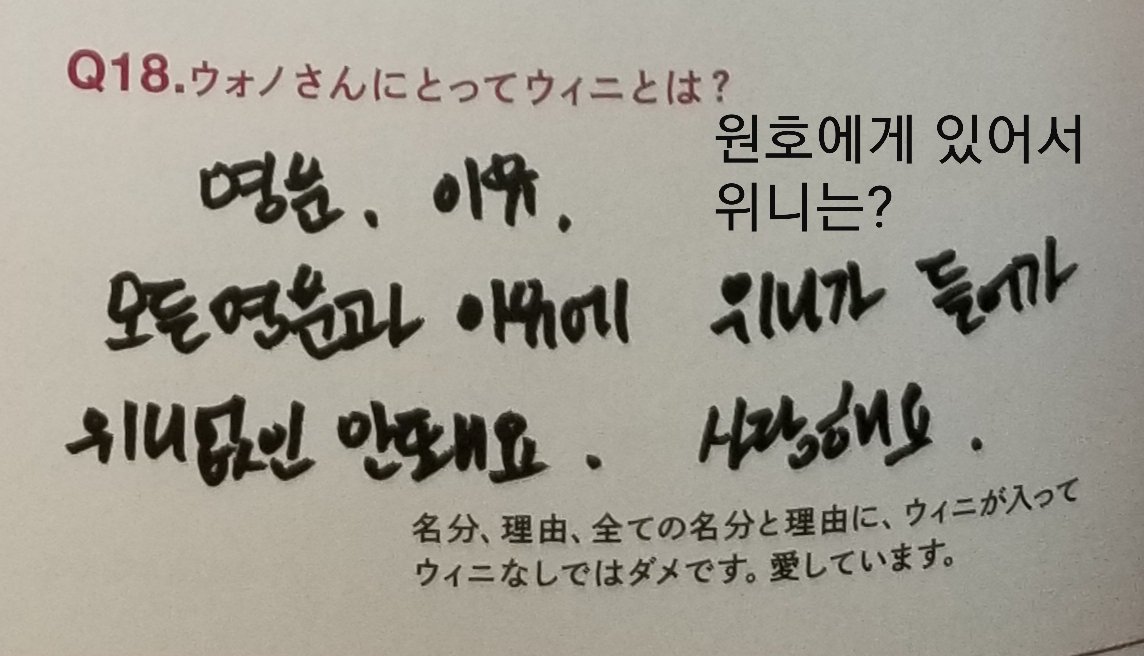 Q18.ウォノさんにとってウィニとは?
원호에게 있어서
위니는?
명분. 이유.
모든명분과 이유에 위니가 들어가
위니없인 안돼요. 사랑해요.
名分、理由、全ての名分と理由に、ウィニが入って
ウィニなしではダメです。愛しています。